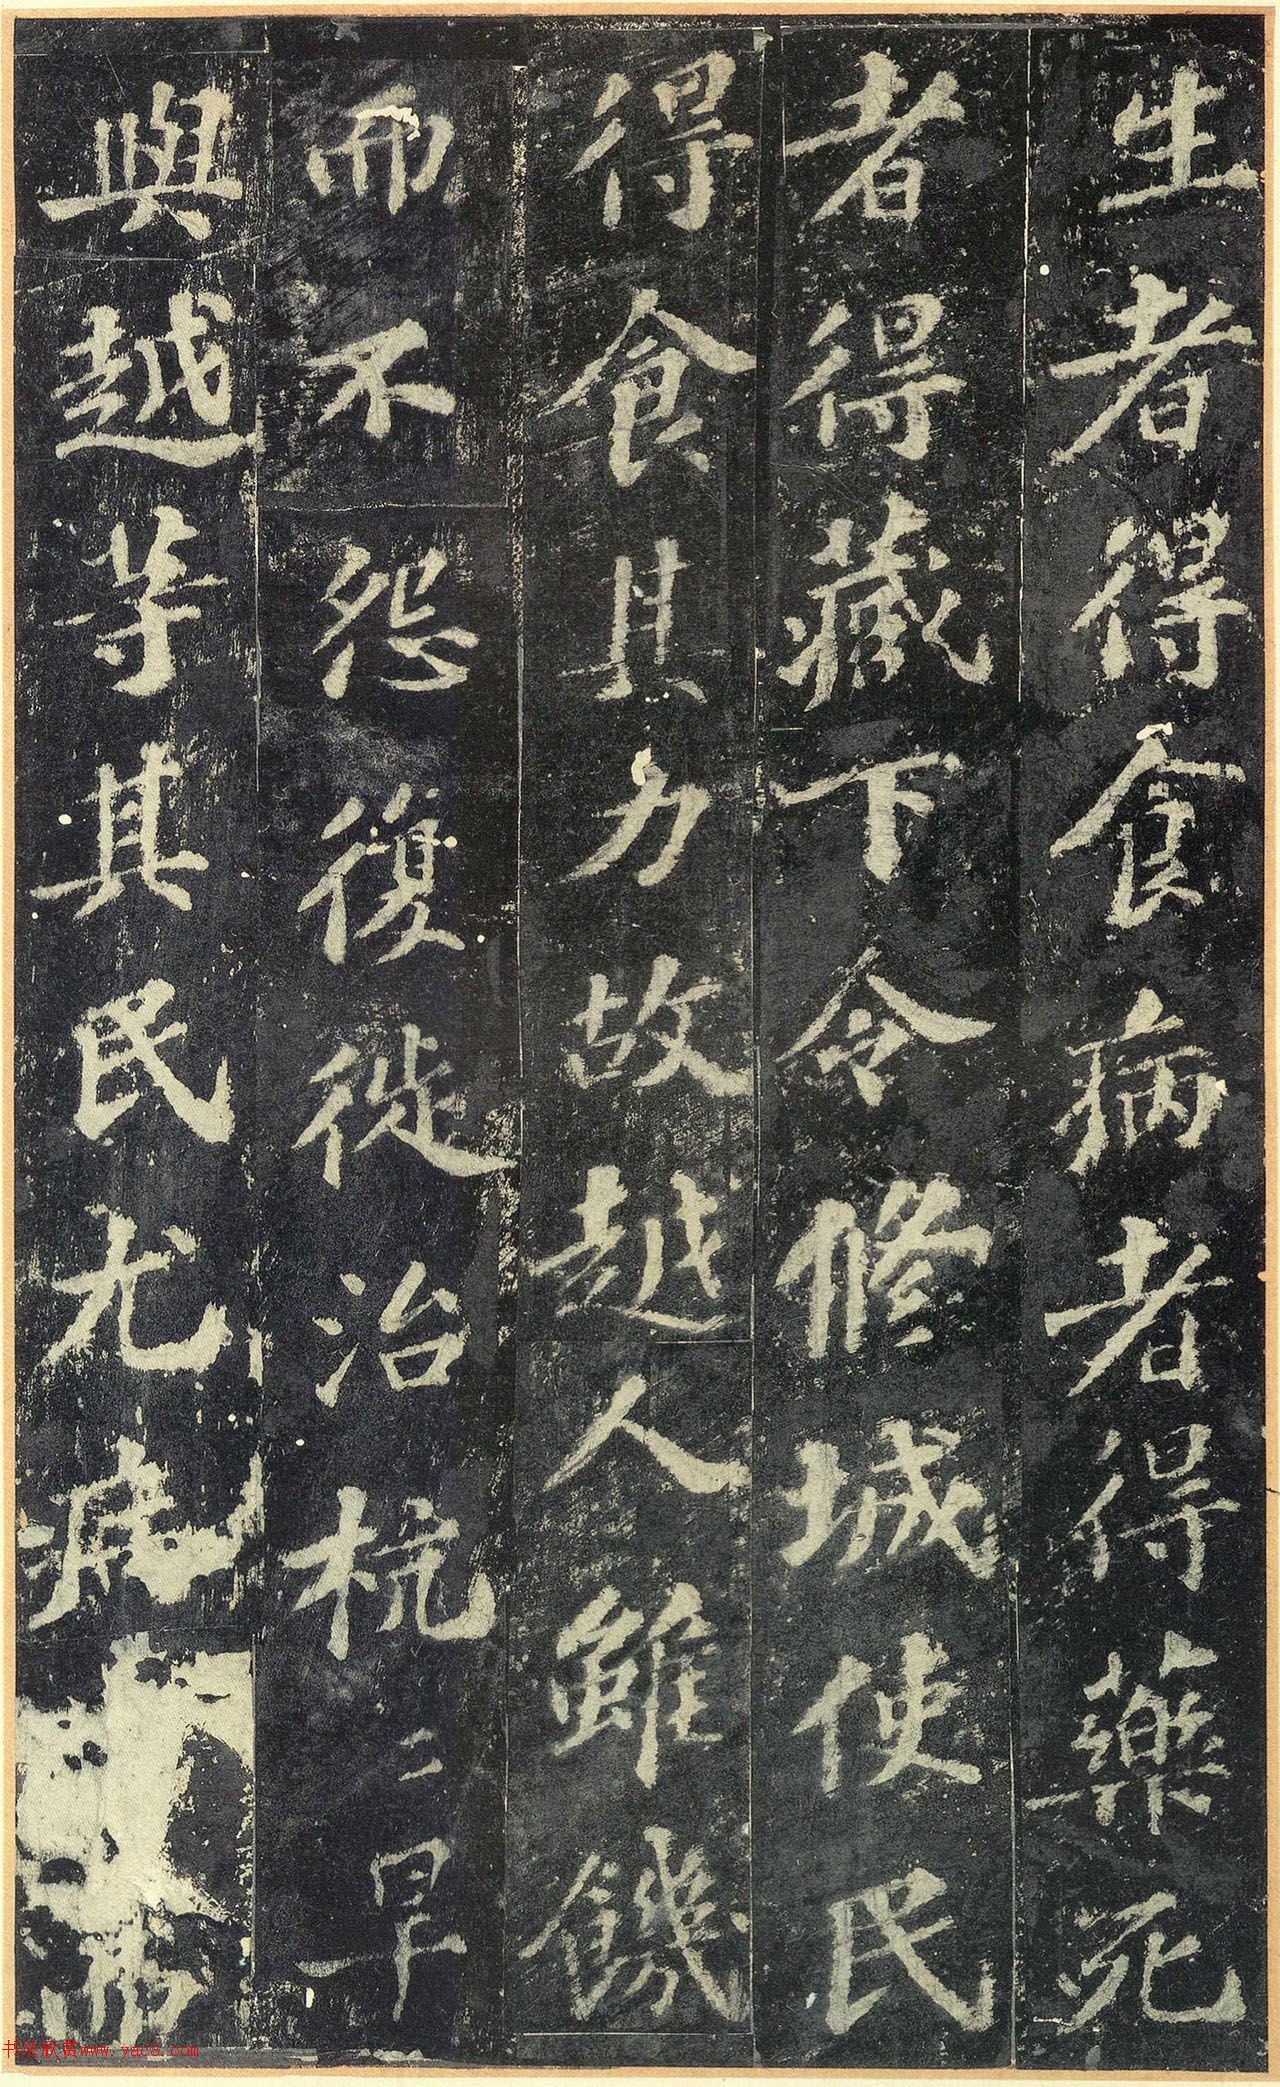 生者得食病者得藥死
者得藏下令脩城使民
得食其力故越人雖饑
而不怨復徙治杭〻旱
與越等其民尤病
书法欣赏www.yac8.com